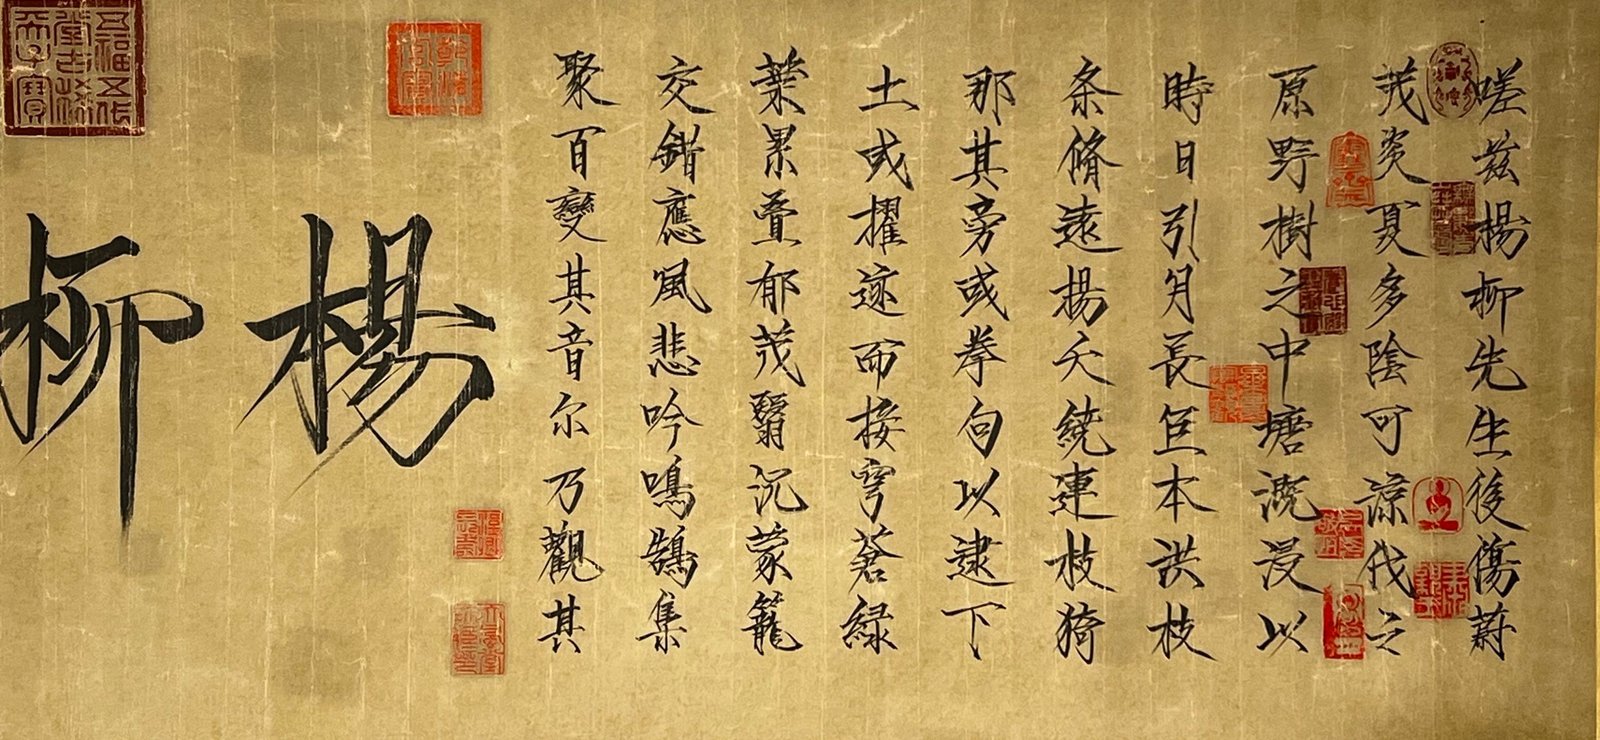 嗟茲楊柳先生後傷蔚
茂炎夏多陰可諒伐之
原野樹之中塘溉浸以
時日引月長巨本洪枝
条脩遠揚夭繞連枝猗
那其旁或拳句以逮下
土或擢迹而接穹蒼緑
葉累叠郁茂翳沉蒙籠
交錯應風悲吟鳴鵠集
聚百變其音尔乃觀其
楊
柳
五福五代
堂古稀
天子寶